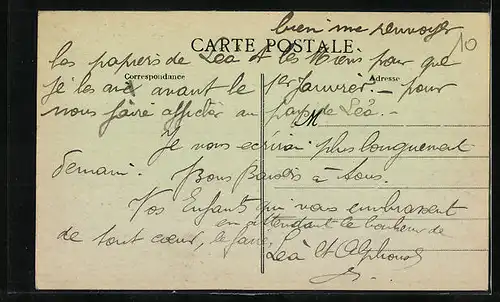 bien me renvoyer
10
CARTE POSTALE
les papiers de Léa et les Miens pour que
Correspondance
Adresse
je les aie avant le 1er Janvier. – pour
nous faire affecter au pays de Léa. –
M
Je vous écrirai plus longuement
demain. Bons Baisers à tous.
Vos Enfants qui vous embrassent
en attendant le bonheur de
de tout cœur, le faire,
Léa et Alphonse